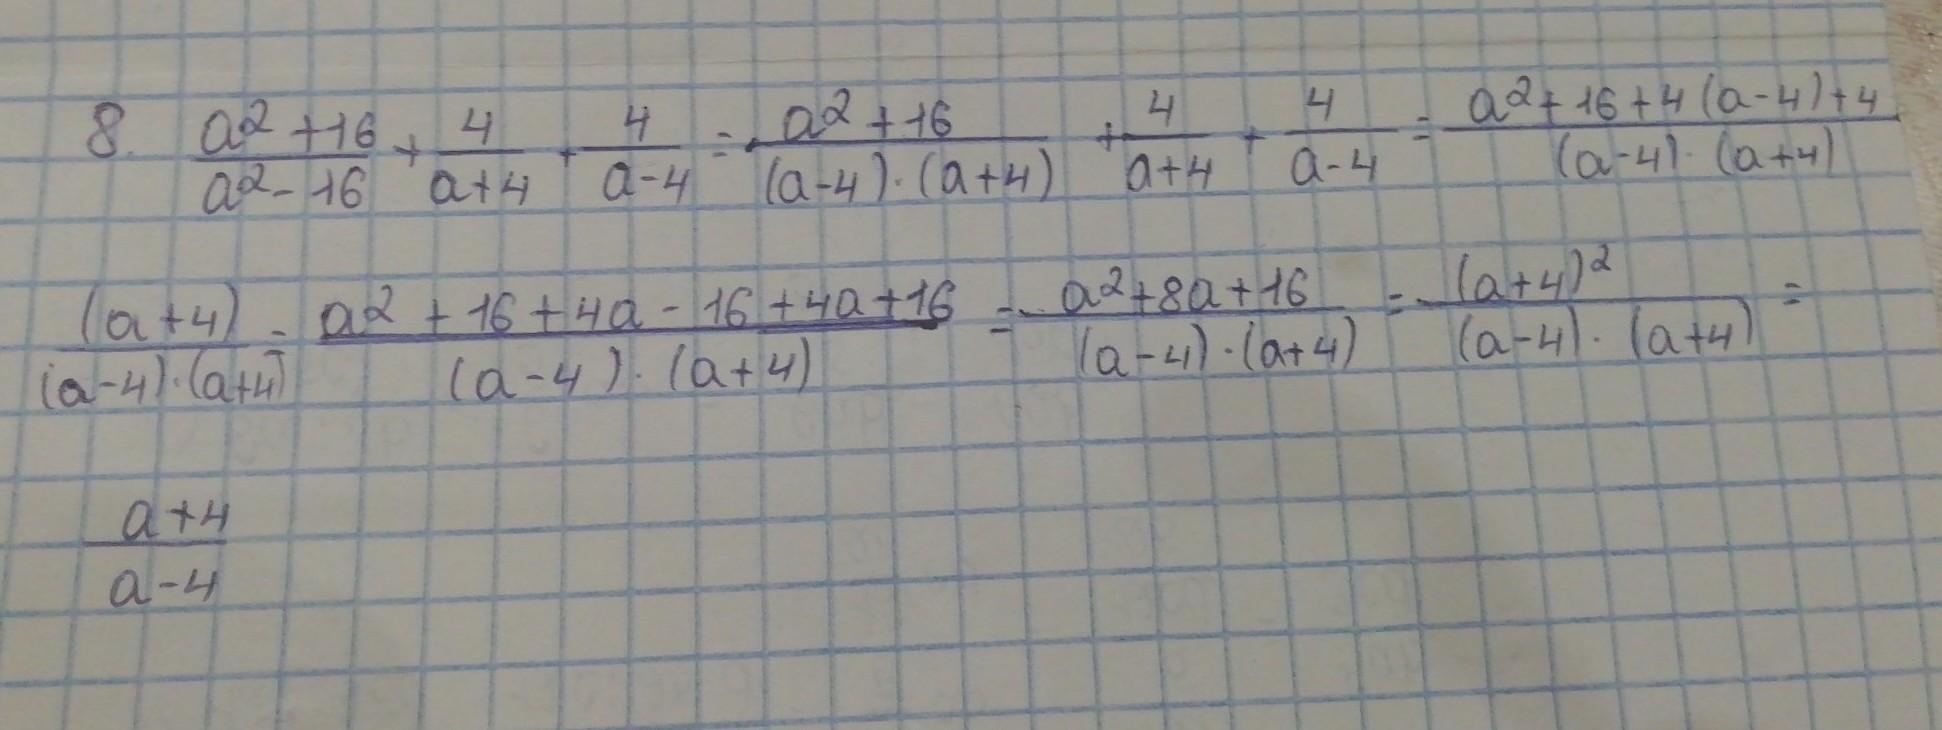 8. \frac{a^2+16}{a^2-16} + \frac{4}{a+4} + \frac{4}{a-4} = \frac{a^2+16}{(a-4)·(a+4)} + \frac{4}{a+4} + \frac{4}{a-4} = \frac{a^2+16+4(a-4)+4}{(a-4)·(a+4)}
\frac{(a+4)}{(a-4)·(a+4)} = \frac{a^2+16+4a-16+4a+16}{(a-4)·(a+4)} = \frac{a^2+8a+16}{(a-4)·(a+4)} = \frac{(a+4)^2}{(a-4)·(a+4)} =
\frac{a+4}{a-4}